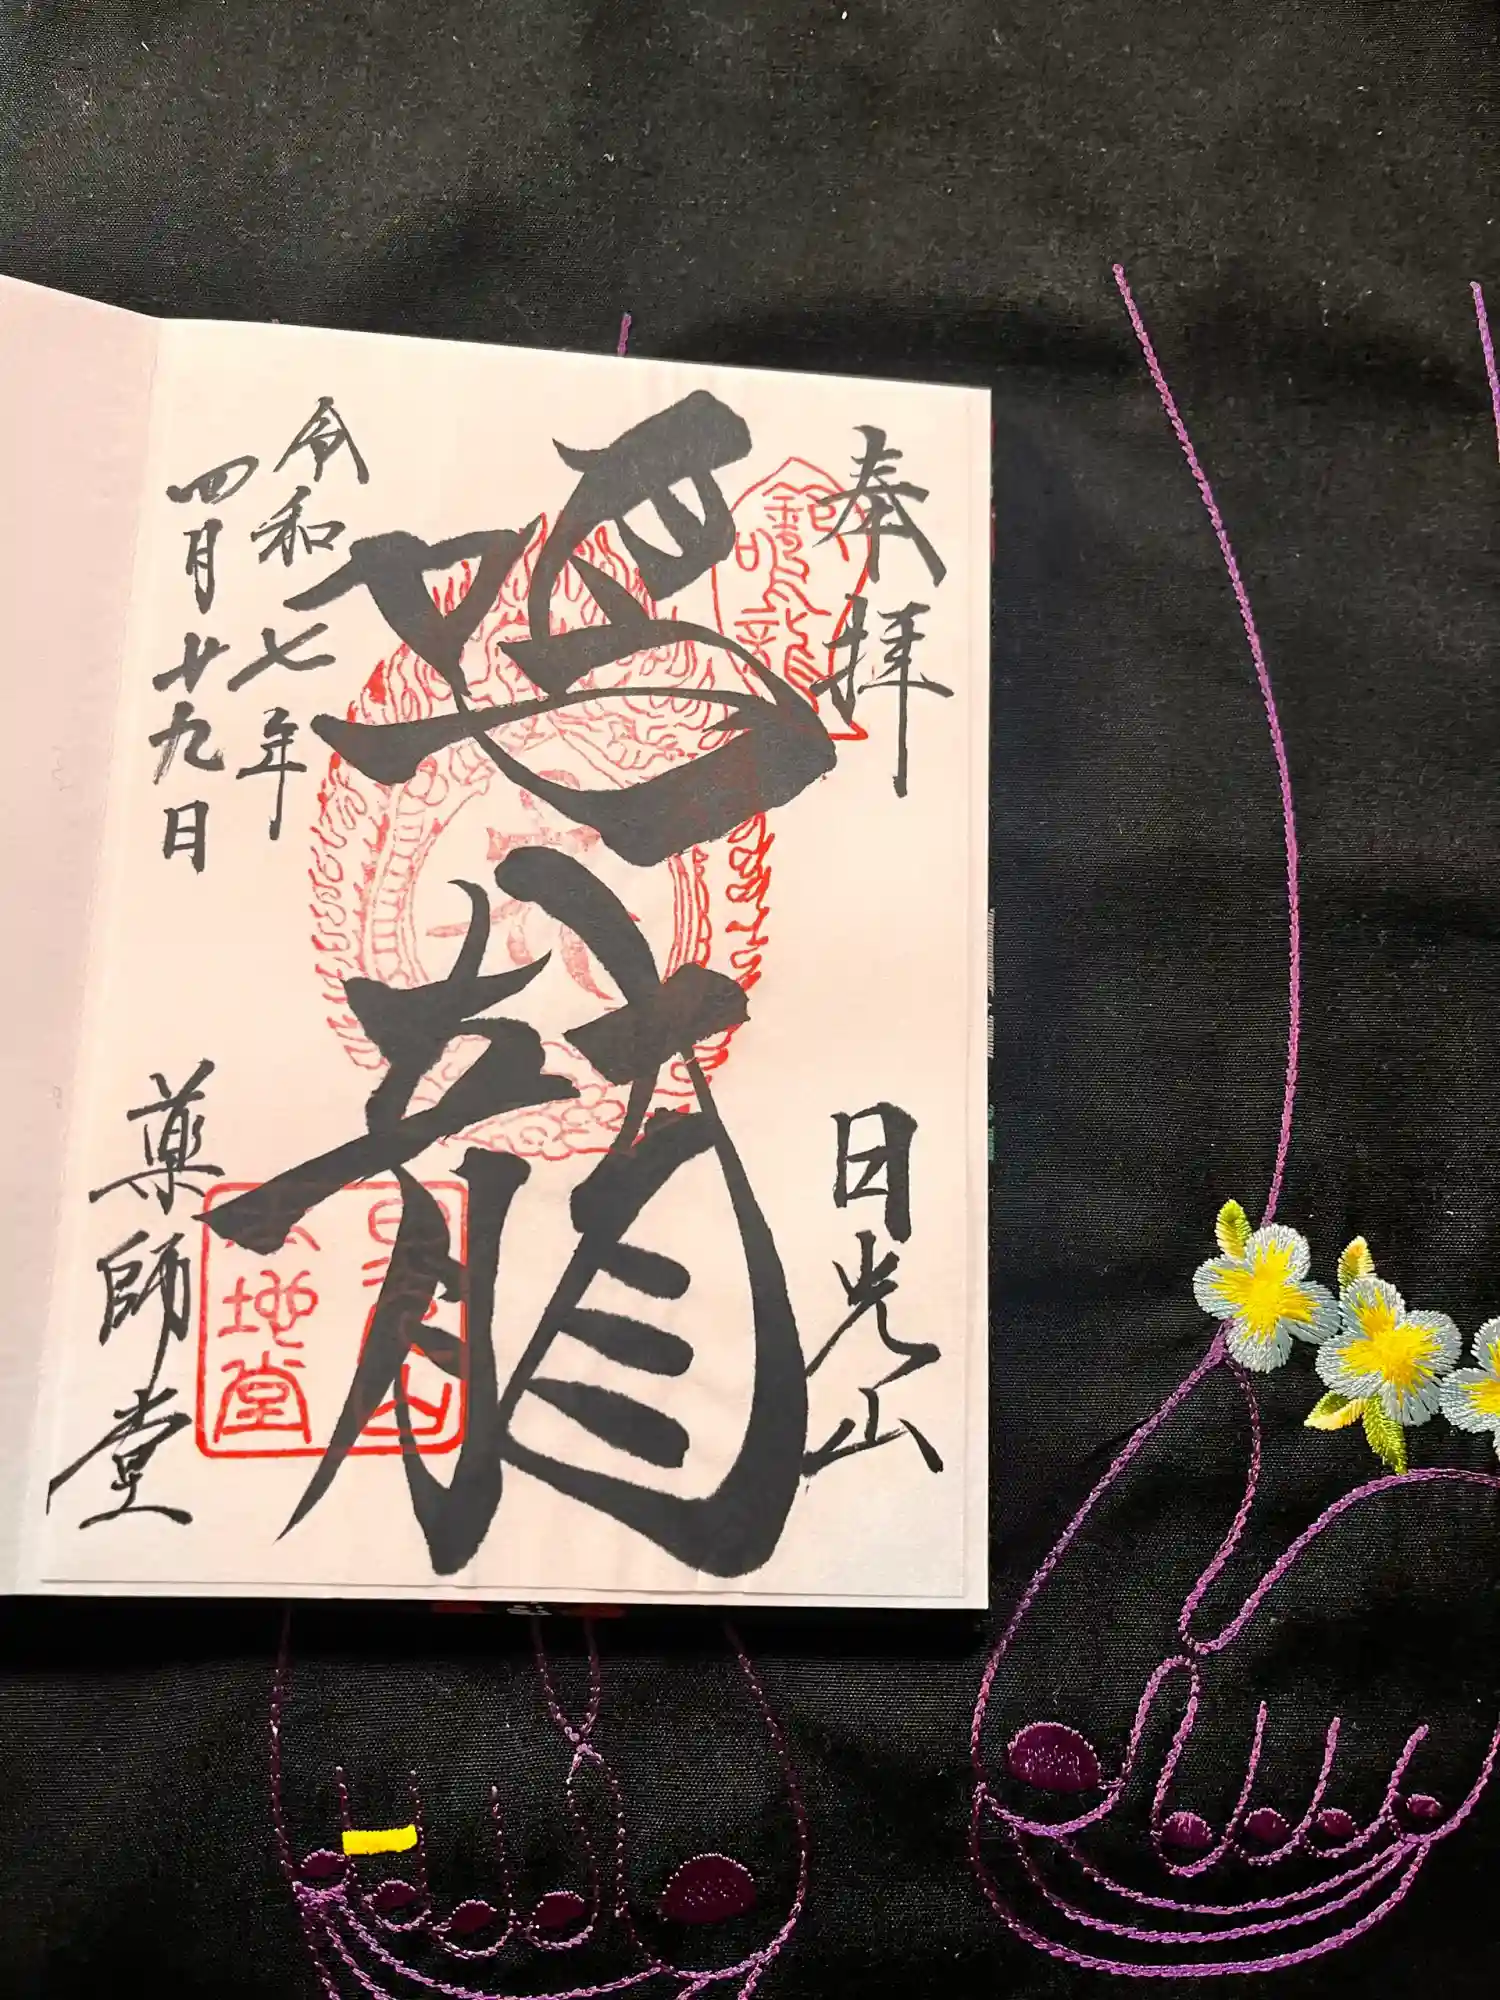 奉拝
日光山
鳴龍
令和七年
四月廿九日
薬師堂
鈴鳴龍
日光山
本地堂